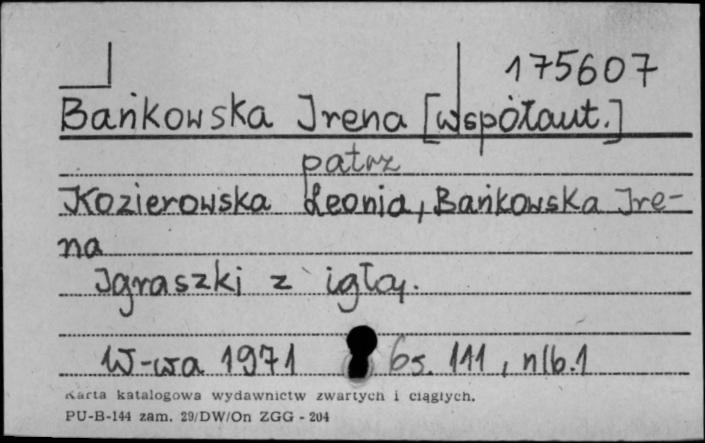 175607
Bańkowska Irena [współaut.]
patrz
Kozierowska Leonia, Bańkowska Ire-
na
Igraszki z igłą.
W-wa 1971 s. 111, nlb. 1
Karta katalogowa wydawnictw zwartych i ciągłych.
PU-B-144 zam. 29/DW/On ZGG - 204